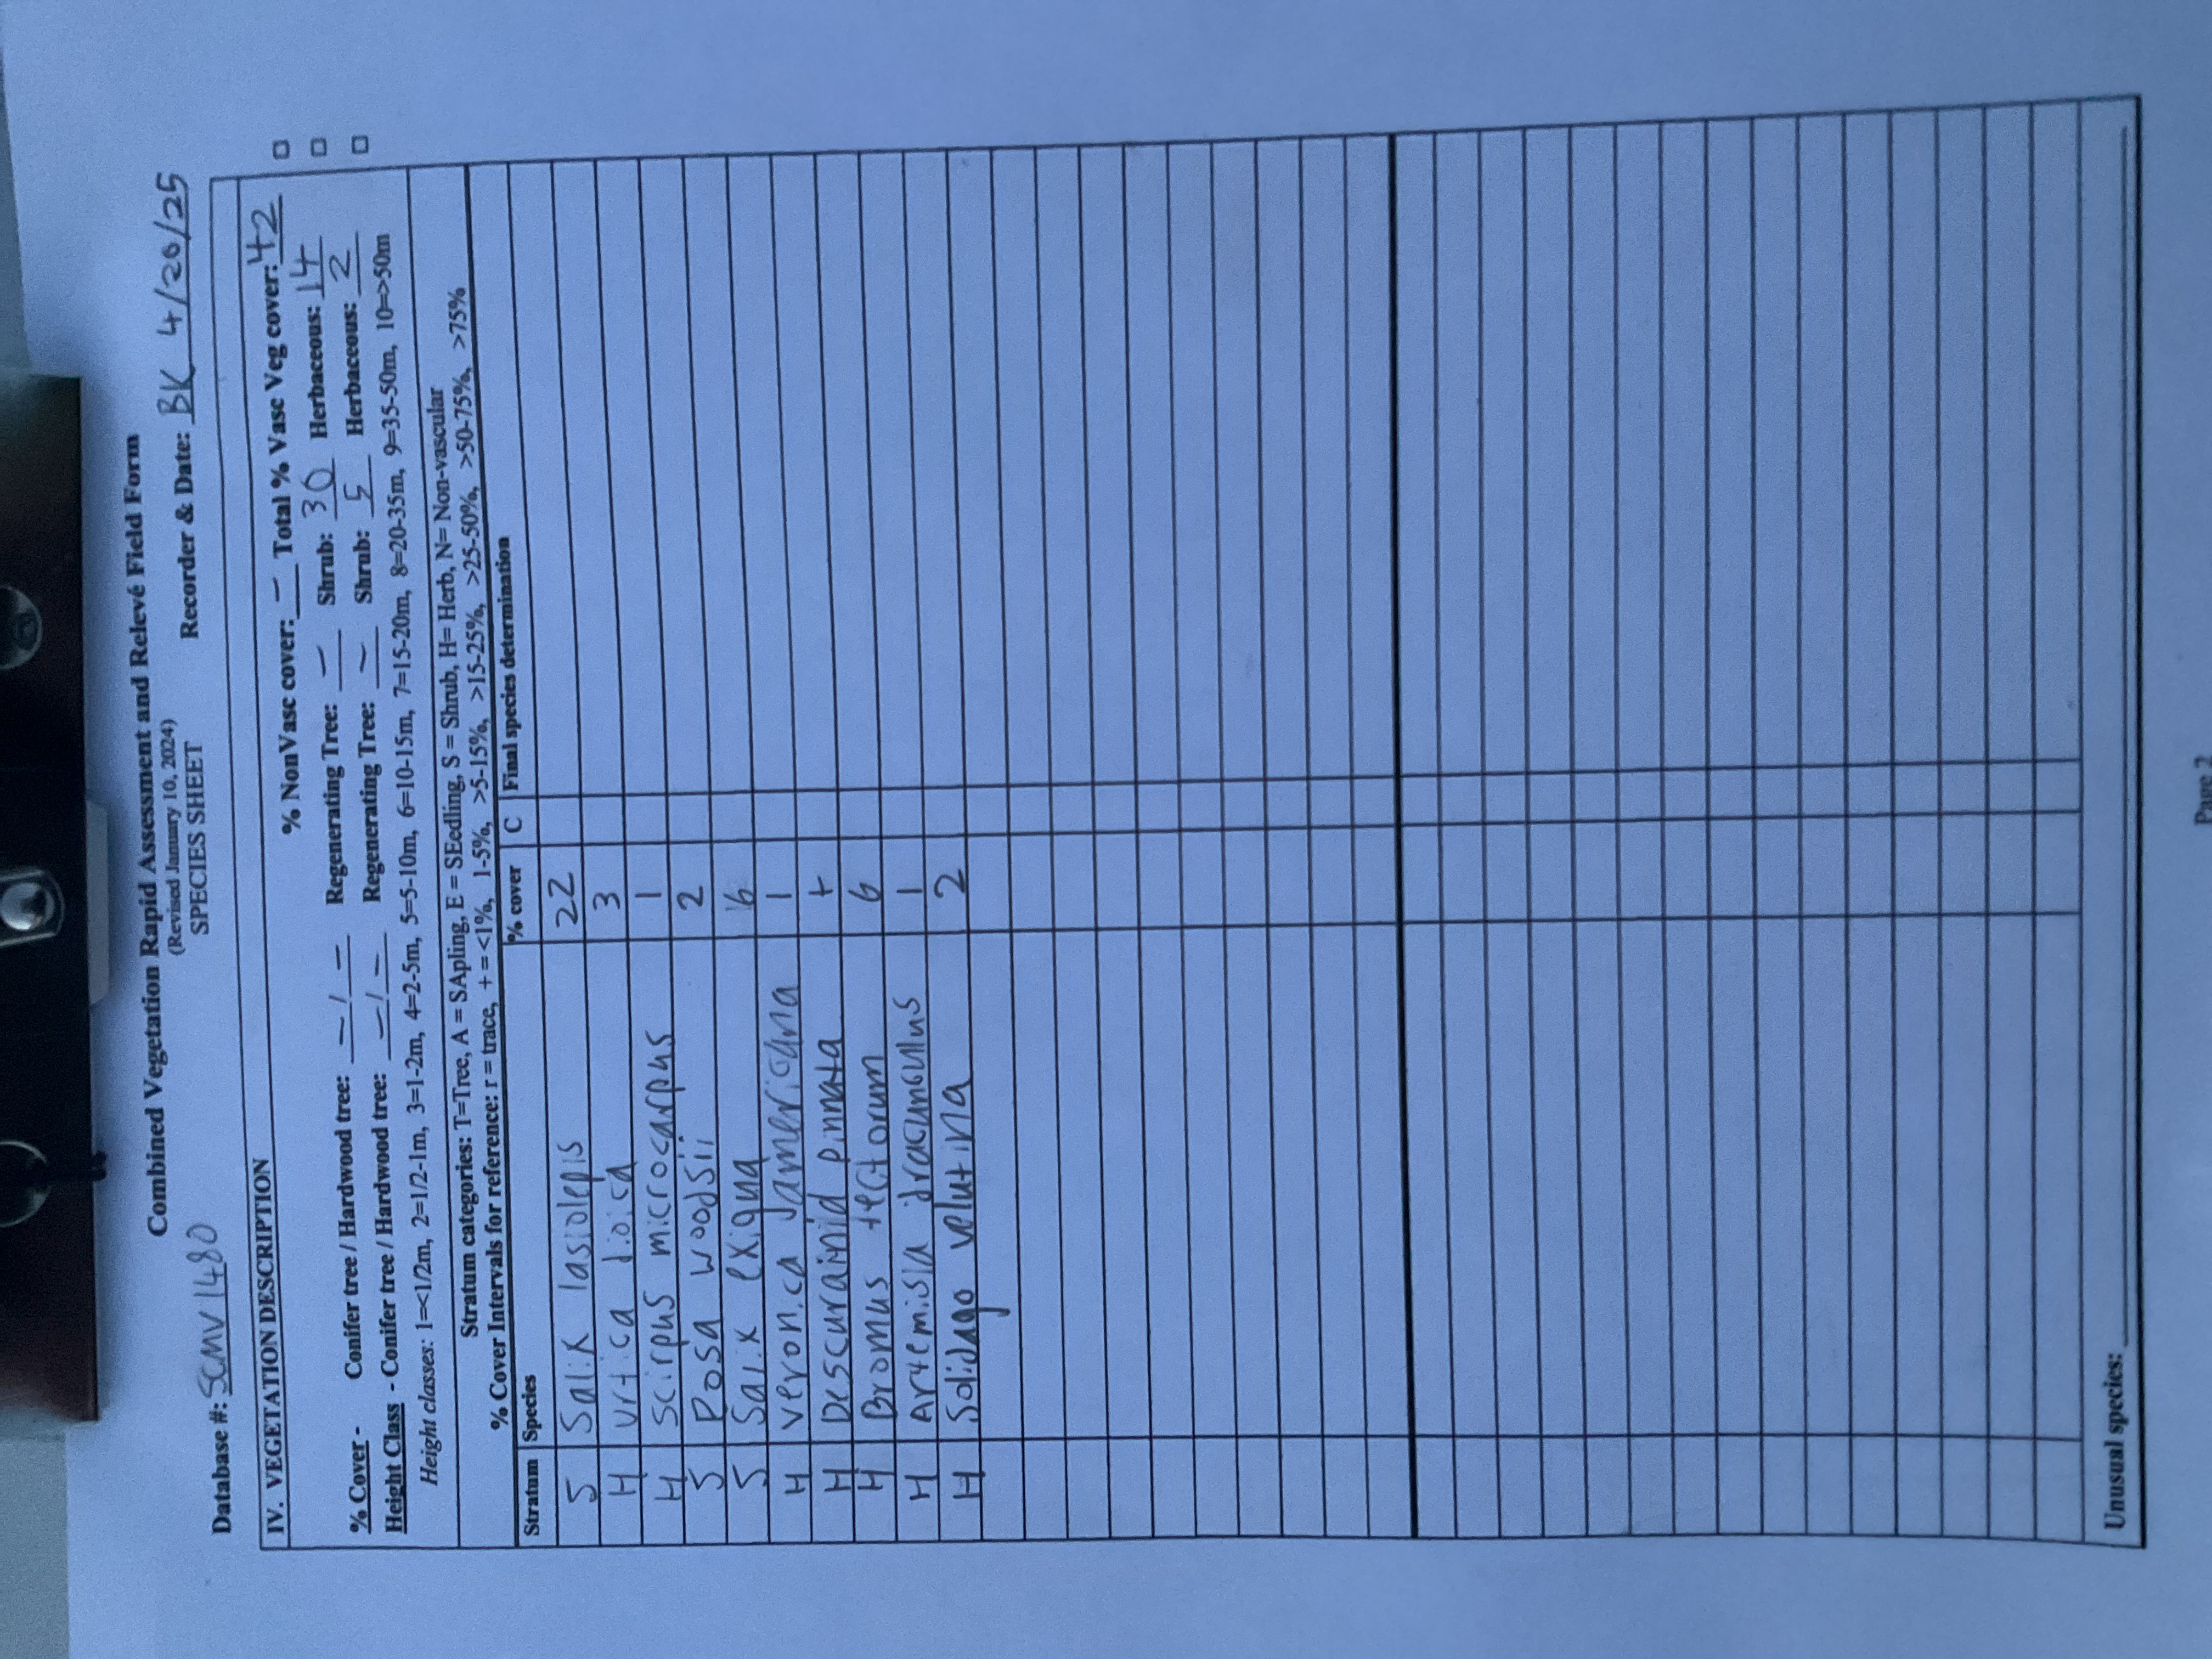 Combined Vegetation Rapid Assessment and Relevé Field Form
(Revised January 10, 2024)
SPECIES SHEET
Database #: SCMV1480 Recorder & Date: BK 4/20/25
IV. VEGETATION DESCRIPTION
% NonVasc cover: – Total % Vasc Veg cover: 42
% Cover - Conifer tree / Hardwood tree: – / – Regenerating Tree: – Shrub: 30 Herbaceous: 14
Height Class - Conifer tree / Hardwood tree: – / – Regenerating Tree: – Shrub: 5 Herbaceous: 2
Height classes: 1=<1/2m, 2=1/2-1m, 3=1-2m, 4=2-5m, 5=5-10m, 6=10-15m, 7=15-20m, 8=20-35m, 9=35-50m, 10=>50m
Stratum categories: T=Tree, A = SApling, E = SEedling, S = Shrub, H= Herb, N= Non-vascular
% Cover Intervals for reference: r = trace, + = <1%, 1-5%, >5-15%, >15-25%, >25-50%, >50-75%, >75%
Stratum Species % cover C Final species determination
S Salix lasiolepis 22
H Urtica dioica 3
H Scirpus microcarpus 1
S Rosa woodsii 2
S Salix exigua 6
H Veronica americana 1
H Descurainia pinnata +
H Bromus tectorum 6
H Artemisia dracunculus 1
H Solidago velutina 2
Unusual species:
Page 2